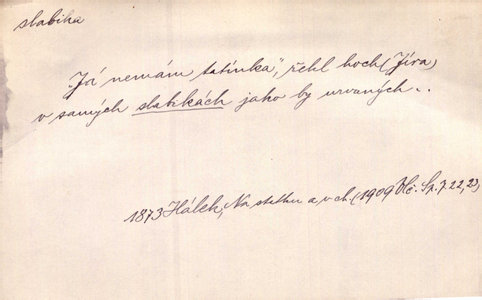 slabika
„Já nemám tatínka", řekl hoch (Jíra)
v samých slabikách jako by urvaných..
1873 Hálek, Na statku a v ch. (1909 Vč. Sp. 7.22,23)